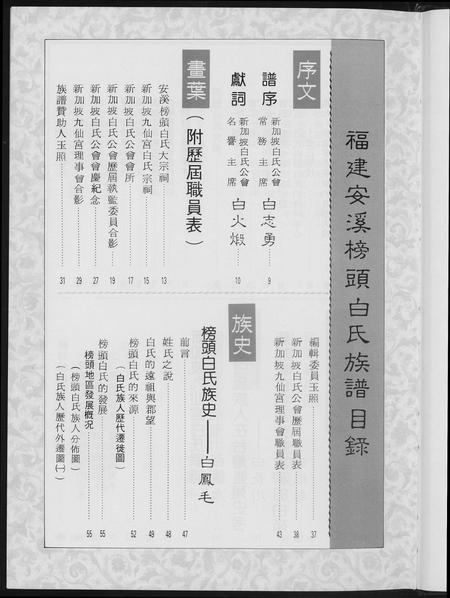 福建安溪榜頭白氏族譜目錄
序文
譜序 新加坡白氏公會常務主席 白志勇 9
獻詞 新加坡白氏公會名譽主席 白火煅 10
畫葉(附歷屆職員表)
安溪榜頭白氏大宗祠 13
新加坡九仙宮白氏宗祠 15
新加坡白氏公會會所 17
新加坡白氏公會歷屆執監委員合影 19
新加坡白氏公會會慶紀念 27
新加坡九仙宮理事會合影 29
族譜贊助人玉照 31
編輯委員玉照 37
新加坡白氏公會歷屆職員表 38
新加坡九仙宮理事會職員表 43
族史
榜頭白氏族史——白鳳毛
前言 47
姓氏之說 48
白氏的遠祖與郡望 49
榜頭白氏的來源 52
(白氏族人歷代遷徙圖)
榜頭白氏的發展 55
榜頭地區發展概況 55
(榜頭白氏族人分佈圖)
(白氏族人歷代外遷圖㈠)